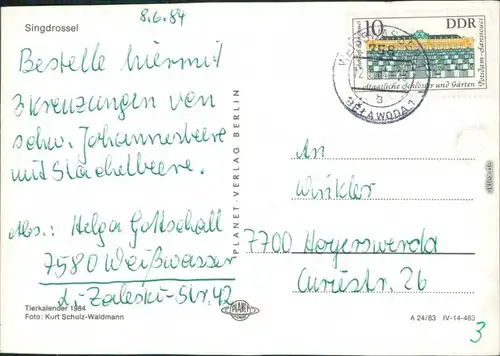 Singdrossel
8.6.84
Bestelle hiermit
3 Kreuzungen von
schw. Johannesbeere
mit Stachelbeere.
Abs.: Helga Gottschall
7580 Weißwasser
Tierkalender 1984
Foto: Kurt Schulz-Waldmann
PLANET-VERLAG BERLIN
PLANET
10 DDR
Staatliche Schlösser und Gärten
Potsdam-Sanssouci
758
BĚŁA WODA 1
An
Winkler
7700 Hoyerswerda
Curiestr. 26
A 24/83 IV-14-483
3